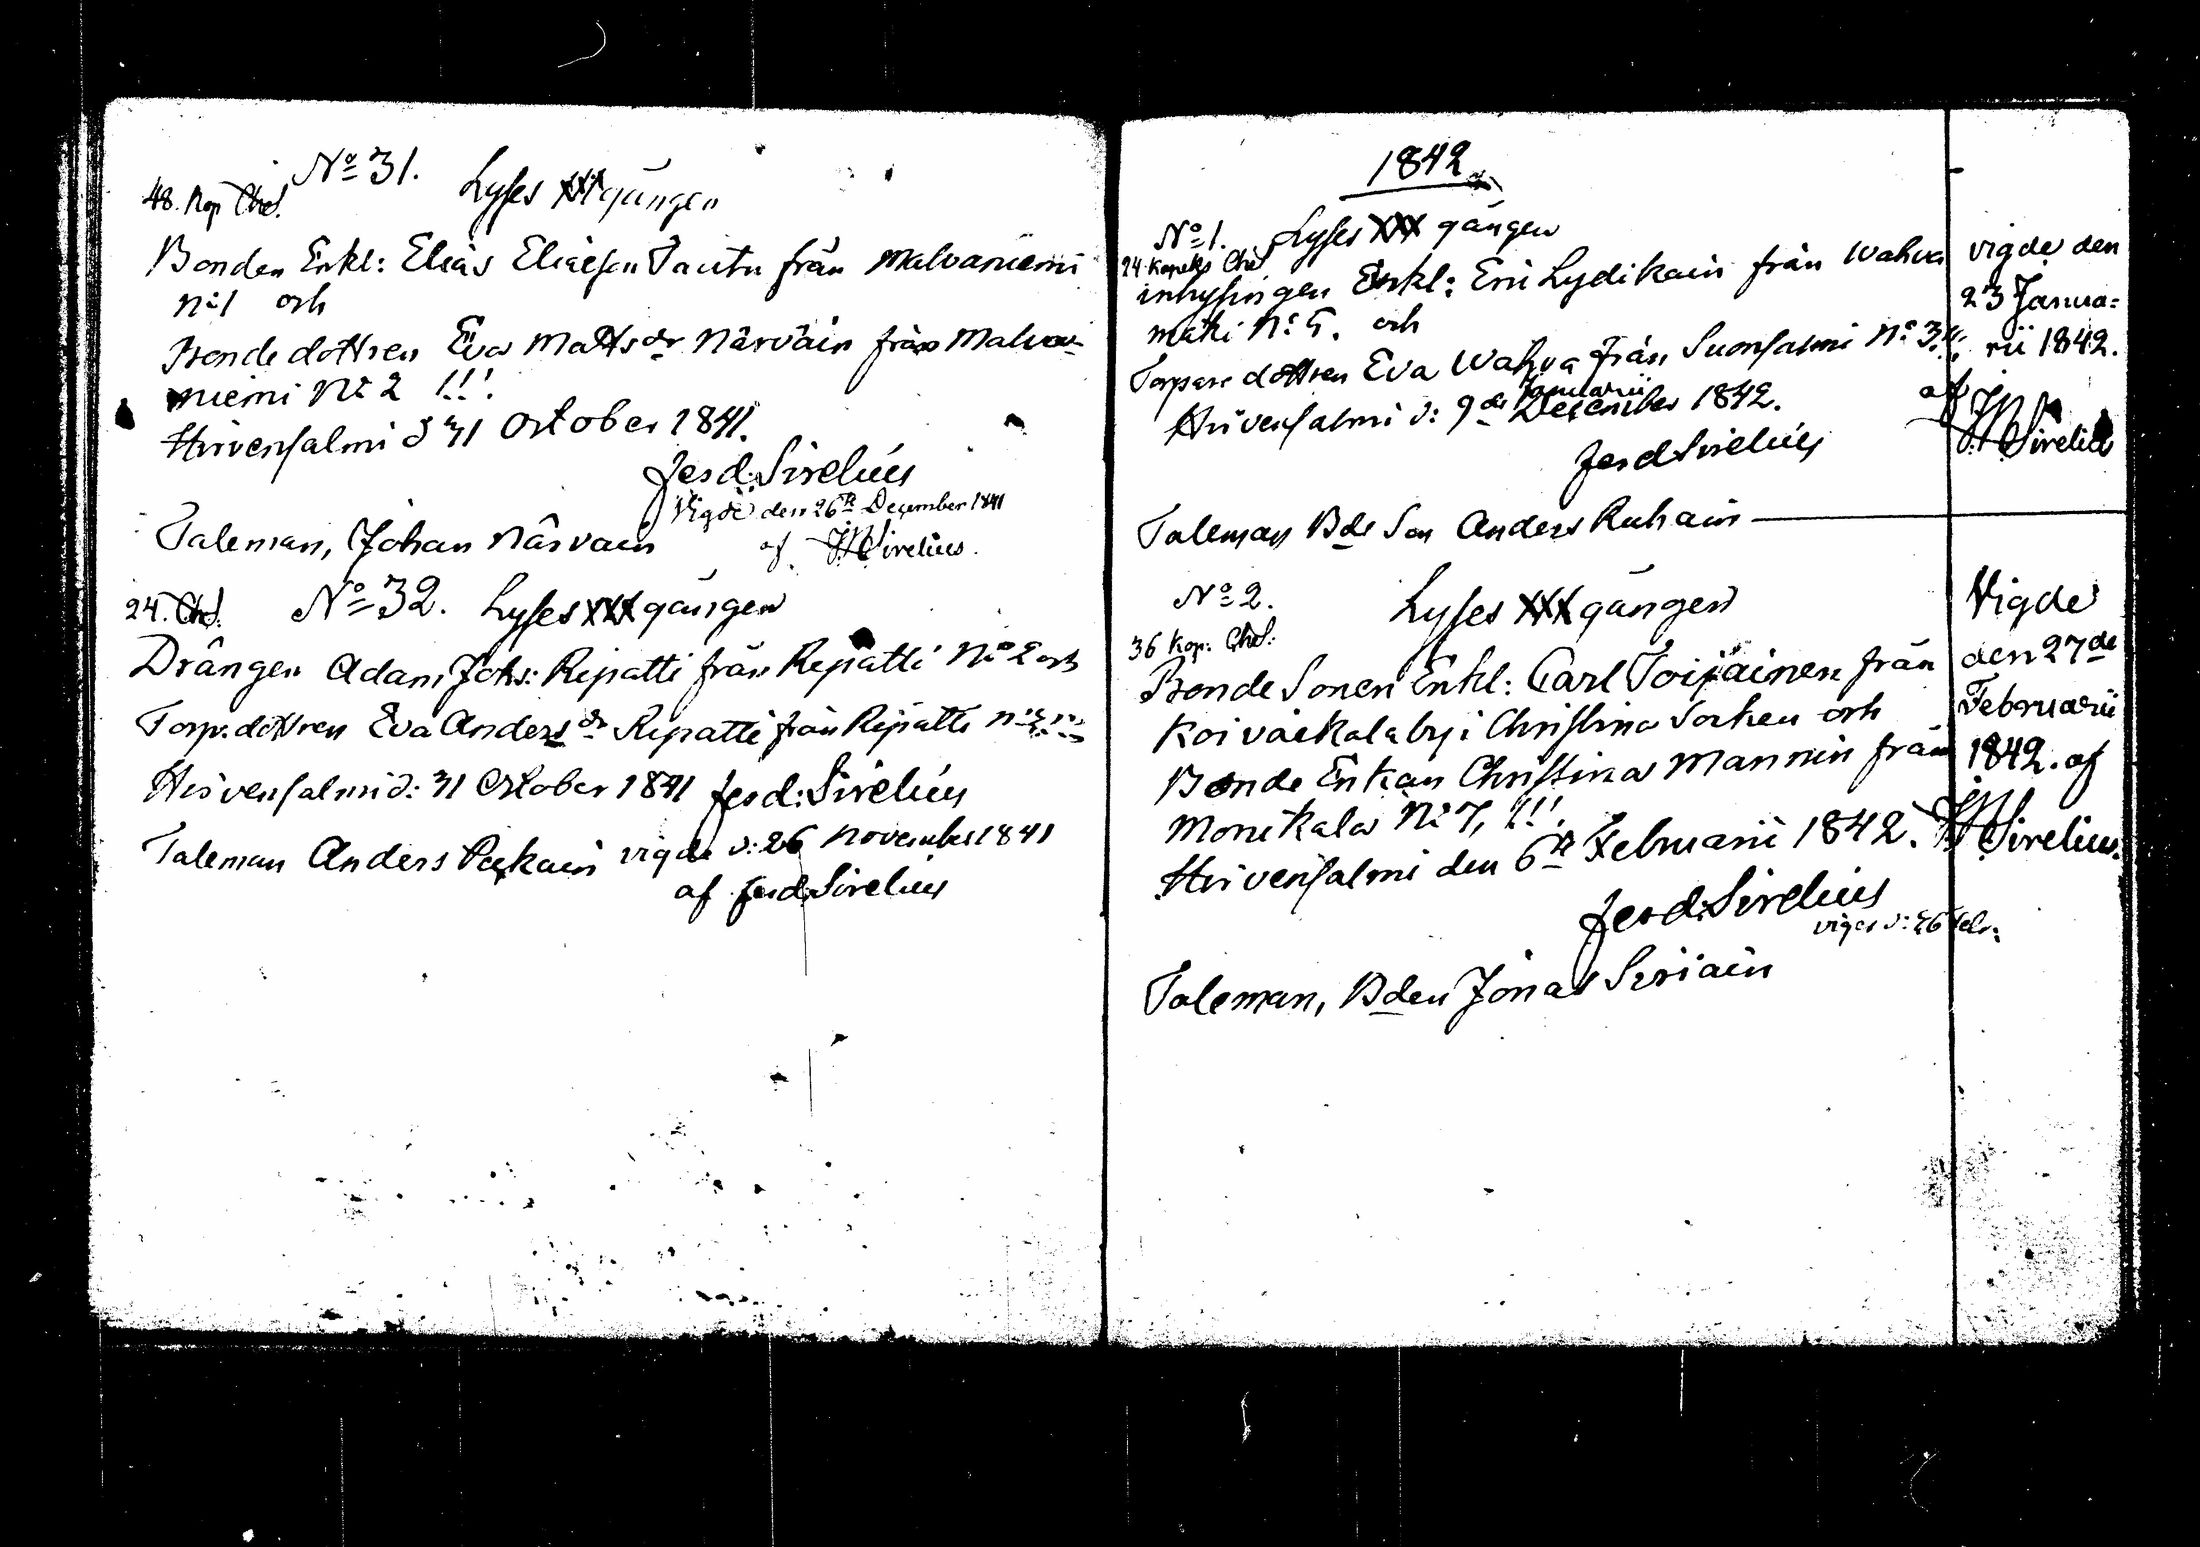 No 31.
48. Kop Chol. Lyses XXX gången
Bonden Enkl: Elias Eliaeson Tautu från Malvaniemi
No 1 och
Bonde dottren Eva Mattsdr Närväin från Malva-
niemi No 2 !!!
Hirvensalmi d 31 October 1841.
Ferd: Sirelius
Vigde den 26te December 1841
Taleman, Johan Närväin af Sirelius.
24. Chol. No 32. Lyses XXX gången
Drängen Adam Johs: Ripatti från Ripatti No 2 och
Torp. dottren Eva Andersdr Ripatti från Ripatti No
Hirvensalmi d: 31 October 1841 Ferd: Sirelius
Taleman Anders vigde d: 26 November 1841
af Ferd. Sirelius
1842
No 1. Lyses XXX gången
24 Kopeks Chol
inhysingen Enkl: Eric Lydikain från Wahva
mäki No 5. och
Torpare dottren Eva Wahva från Suonsalmi No 3.
Januarii
Hirvensalmi d: 9de December 1842.
Ferd Sirelius
Taleman Bde Son Anders Ruhain
vigde den
23 Janua=
rii 1842.
af
Sirelius
No 2. Lyses XXX gången
36 Kop: Chol:
Bonde Sonen Enkl: Carl Toijainen från
Koiväkala by i Christina Socken och
Bonde Enkan Christina Mannin från
Monikala No 7, !!!
Hirvensalmi den 6te Februarii 1842.
Ferd: Sirelius
viges d: 26 Febr:
Taleman, Bden Jonas
Vigde
den 27de
Februarii
1842. af
Sirelius.